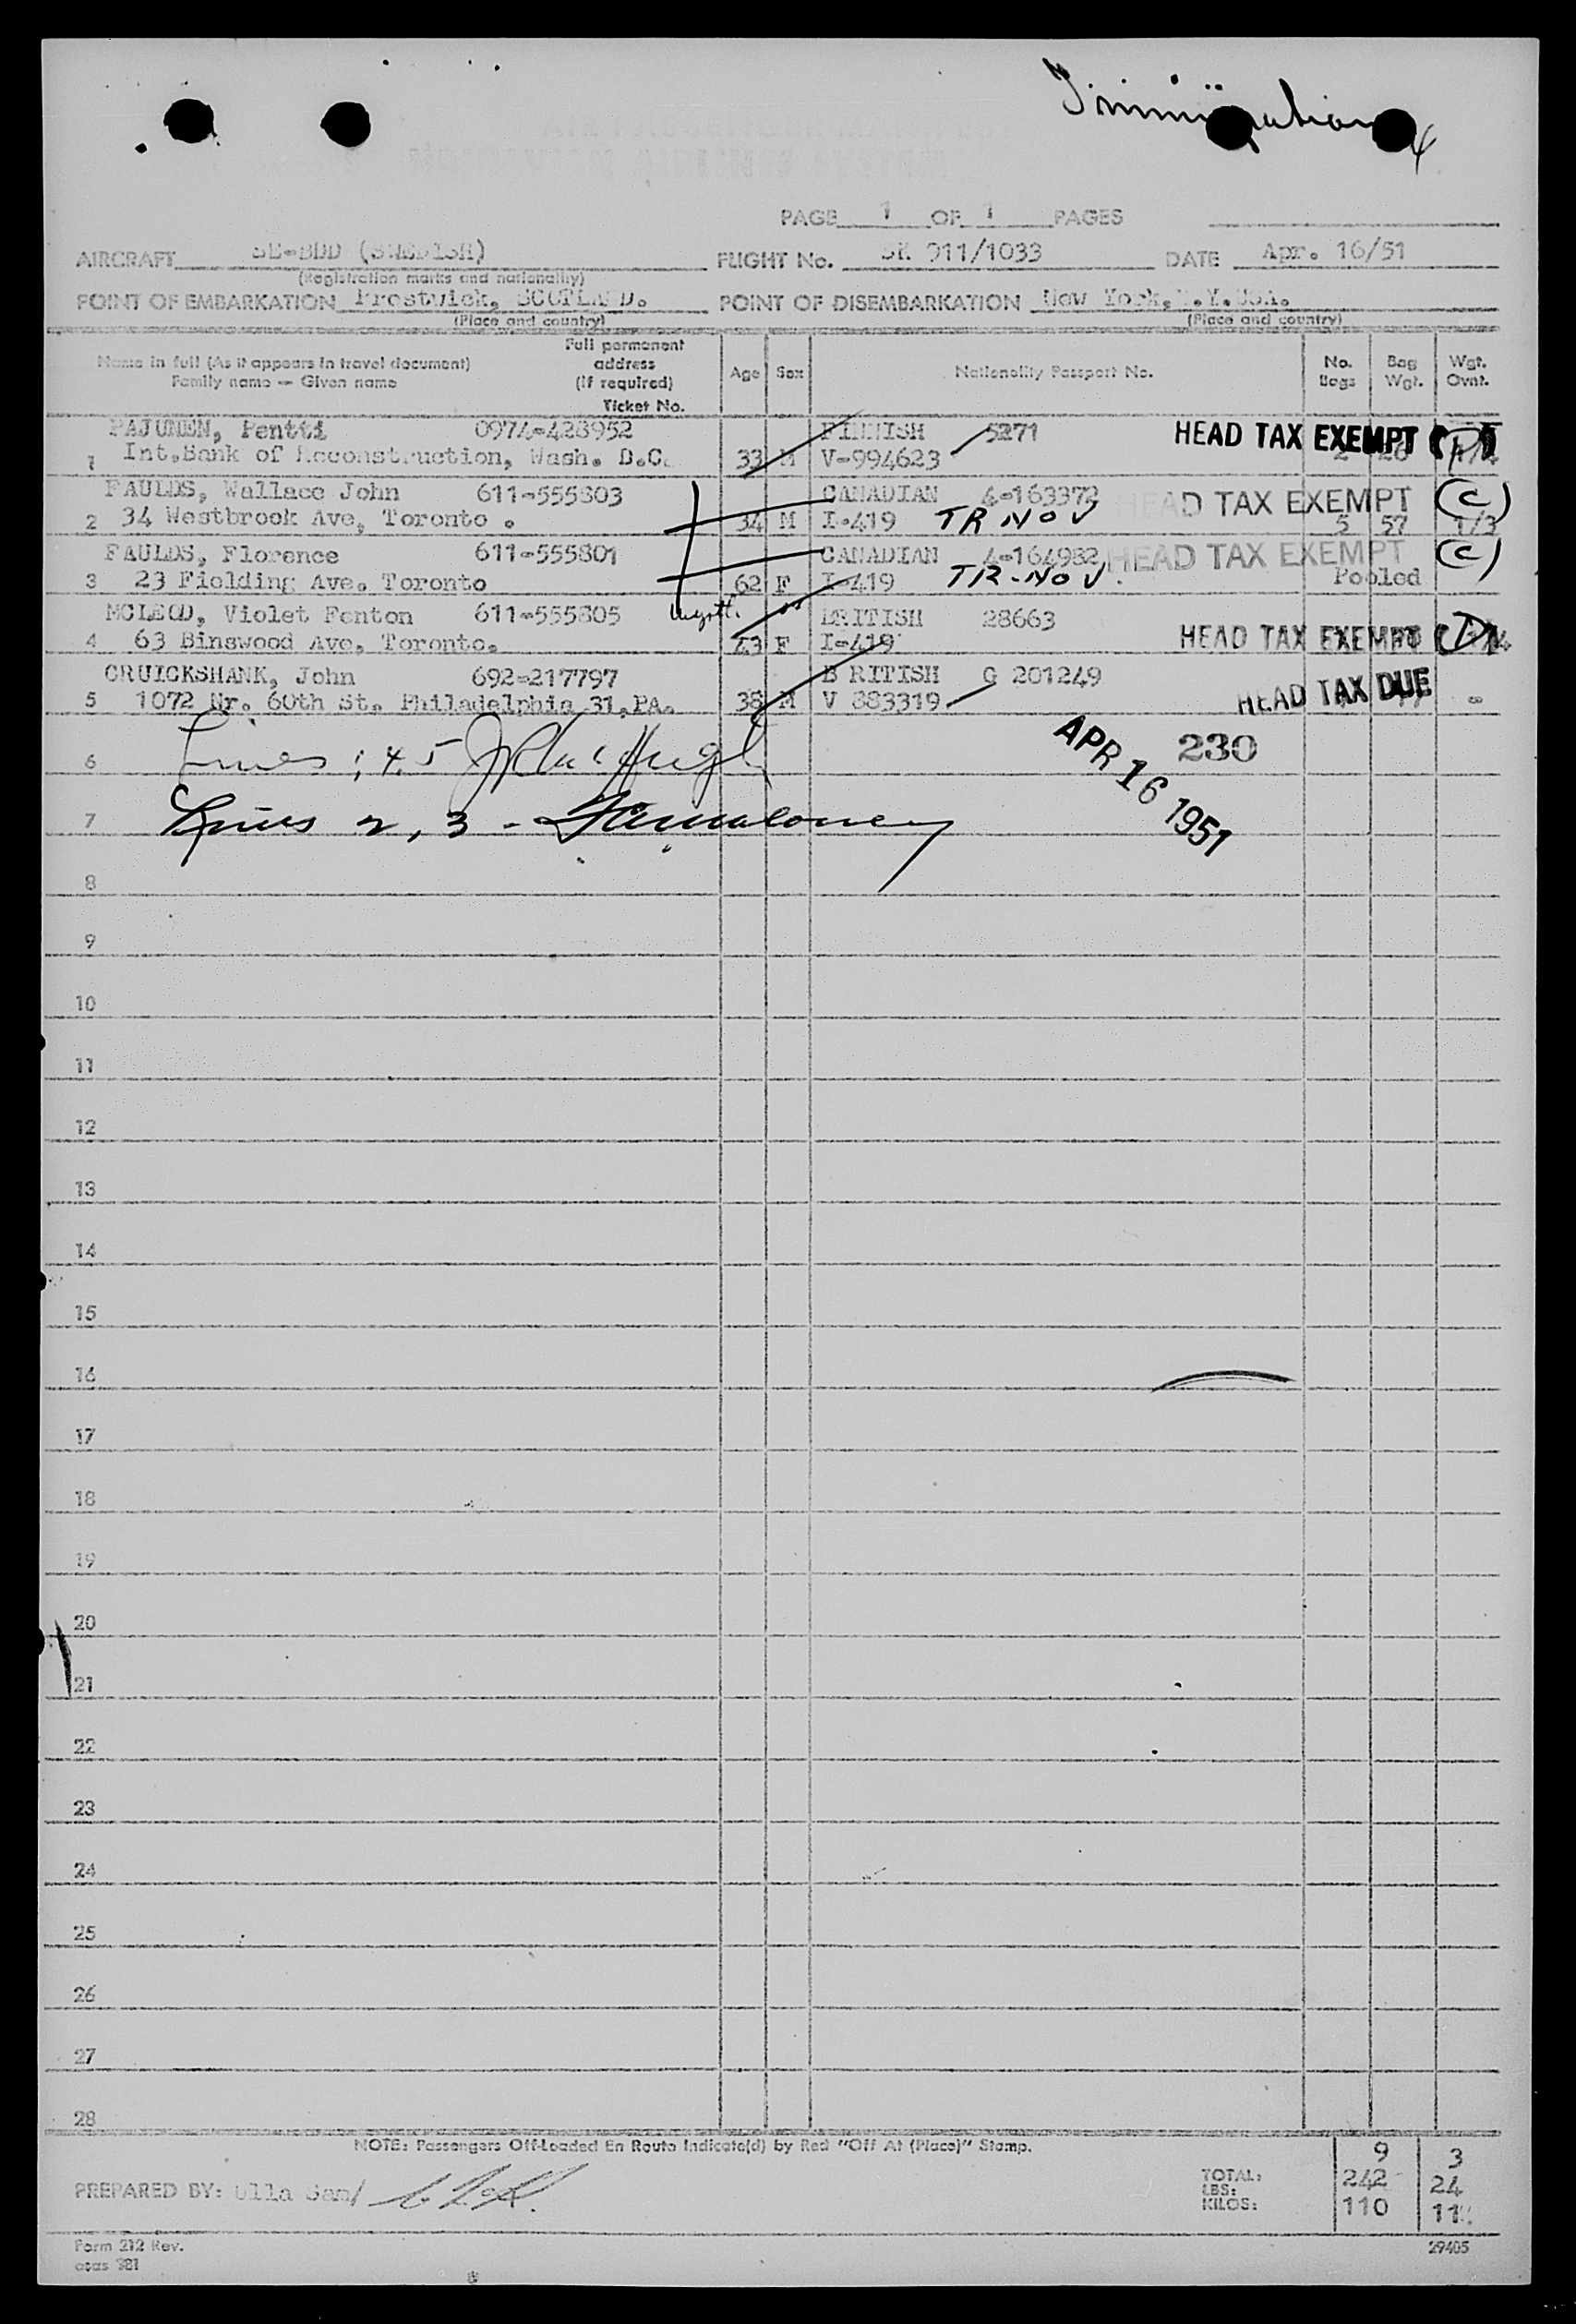 Immigration
PAGE 1 OF 1 PAGES
AIRCRAFT SE-BDD (SWEDISH) FLIGHT No. SK 911/1033 DATE Apr. 16/51
(Registration marks and nationality)
POINT OF EMBARKATION Prestwick, SCOTLAND. POINT OF DISEMBARKATION New York, N.Y. USA.
(Place and country) (Place and country)
Name in full (As it appears in travel document)
Family name — Given name
Full permanent
address
(If required)
Ticket No.
Age Sex Nationality Passport No. No. Bags Bag Wgt. Wgt. Ovnt.
PAJUNEN, Pentti 0974-428952 FINNISH 5271 HEAD TAX EXEMPT
1 Int.Bank of Reconstruction, Wash. D.C. 33 M V-994623
FAULDS, Wallace John 611-555803 CANADIAN 4-163372 HEAD TAX EXEMPT (C)
2 34 Westbrook Ave, Toronto . 34 M I-419 TR NOV 5 57 1/3
FAULDS, Florence 611-555801 CANADIAN 4-164982 HEAD TAX EXEMPT (C)
3 23 Fielding Ave. Toronto 62 F I-419 TR-NOV. Pooled
MCLEOD, Violet Fenton 611-555805 BRITISH 28663
4 63 Binswood Ave, Toronto. 43 F I-419 HEAD TAX EXEMPT
CRUICKSHANK, John 692-217797 B RITISH G 201249
5 1072 Nr. 60th St. Philadelphia 31, PA. 38 M V 883319 HEAD TAX DUE
6 Lines; 4.5
230
APR 16 1951
7 Lines 2, 3 -
8
9
10
11
12
13
14
15
16
17
18
19
20
21
22
23
24
25
26
27
28
NOTE: Passengers Off-Loaded En Route Indicate(d) by Red "Off At (Place)" Stamp.
PREPARED BY: Ulla
TOTAL: 9 3
LBS: 242 24
KILOS: 110 11
Form 212 Rev.
29405